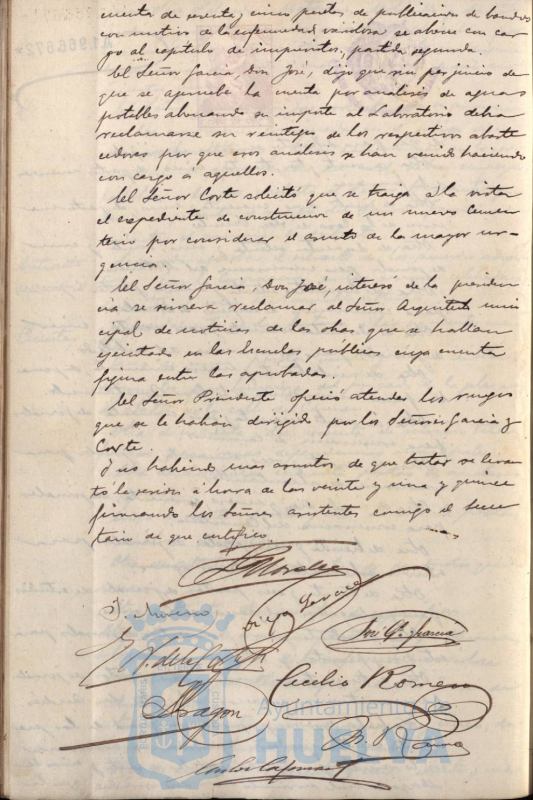 cuenta de sesenta y cinco pesetas de publicacion de bandos
con motivo de la enfermedad variolosa se abone con car
go al capitulo de imprevistos, partida segunda.
El Señor Garcia, Don José, dijo que sin perjuicio de
que se apruebe la cuenta por analisis de aguas
potables abonando su importe al Laboratorio debia
reclamarse su reintegro de los respectivos abaste
cedores por que esos análisis se han venido haciendo
con cargo á aquellos.
El Señor Corte solicitó que se traiga á la vista
el expediente de construccion de un nuevo Cemen
terio por considerar el asunto de la mayor ur-
gencia.
El Señor Garcia, Don José, interesó de la presiden
cia se sirviera reclamar al Señor Arquitecto muni
cipal de noticias de las obras que se hallan
ejecutado en las Escuelas públicas cuya cuenta
figura entre las aprobadas.
El Señor Presidente ofreció atender los ruegos
que se le habian dirigido por los Señores Garcia y
Corte.
Y no habiendo mas asuntos de que tratar se levan
tó la sesion á hora de las veinte y una y quince
firmando los Señores asistentes conmigo el Secre
tario de que certifico.
J. Moreno
José Gª Garcia
Cecilio Romero
Aragon
Ayuntamiento de
HUELVA